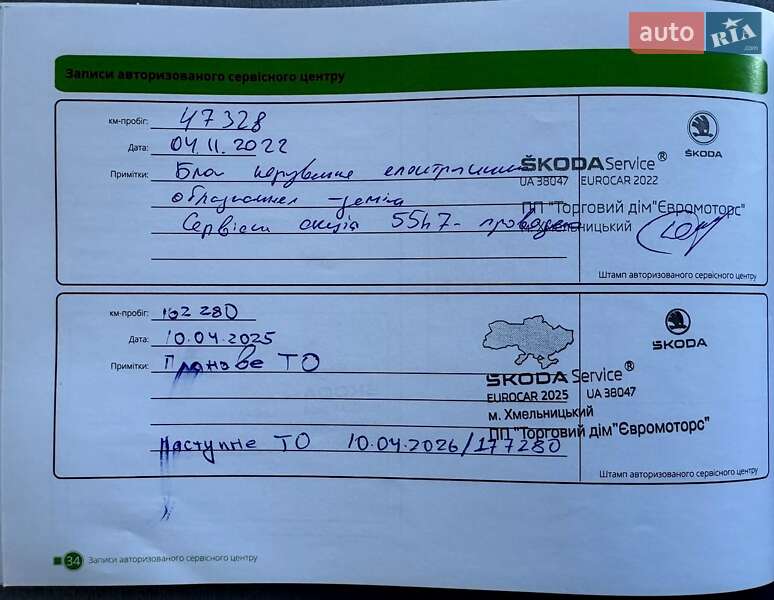 auto RIA .com
Записи авторизованого сервісного центру
км-пробіг: 47328
Дата: 04.11.2022
Примітки: Блок керування
заміна
Сервісн акція 55H7-
SKODA
ŠKODA Service®
UA 38047 EUROCAR 2022
ПП "Торговий дім"Євромоторс"
Хмельницький
Штамп авторизованого сервісного центру
км-пробіг: 162 280
Дата: 10.04.2025
Примітки: Планове ТО
Наступне ТО 10.04.2026/177280
ŠKODA
ŠKODA Service®
EUROCAR 2025 UA 38047
м. Хмельницький
ПП "Торговий дім"Євромоторс"
Штамп авторизованого сервісного центру
34 Записи авторизованого сервісного центру